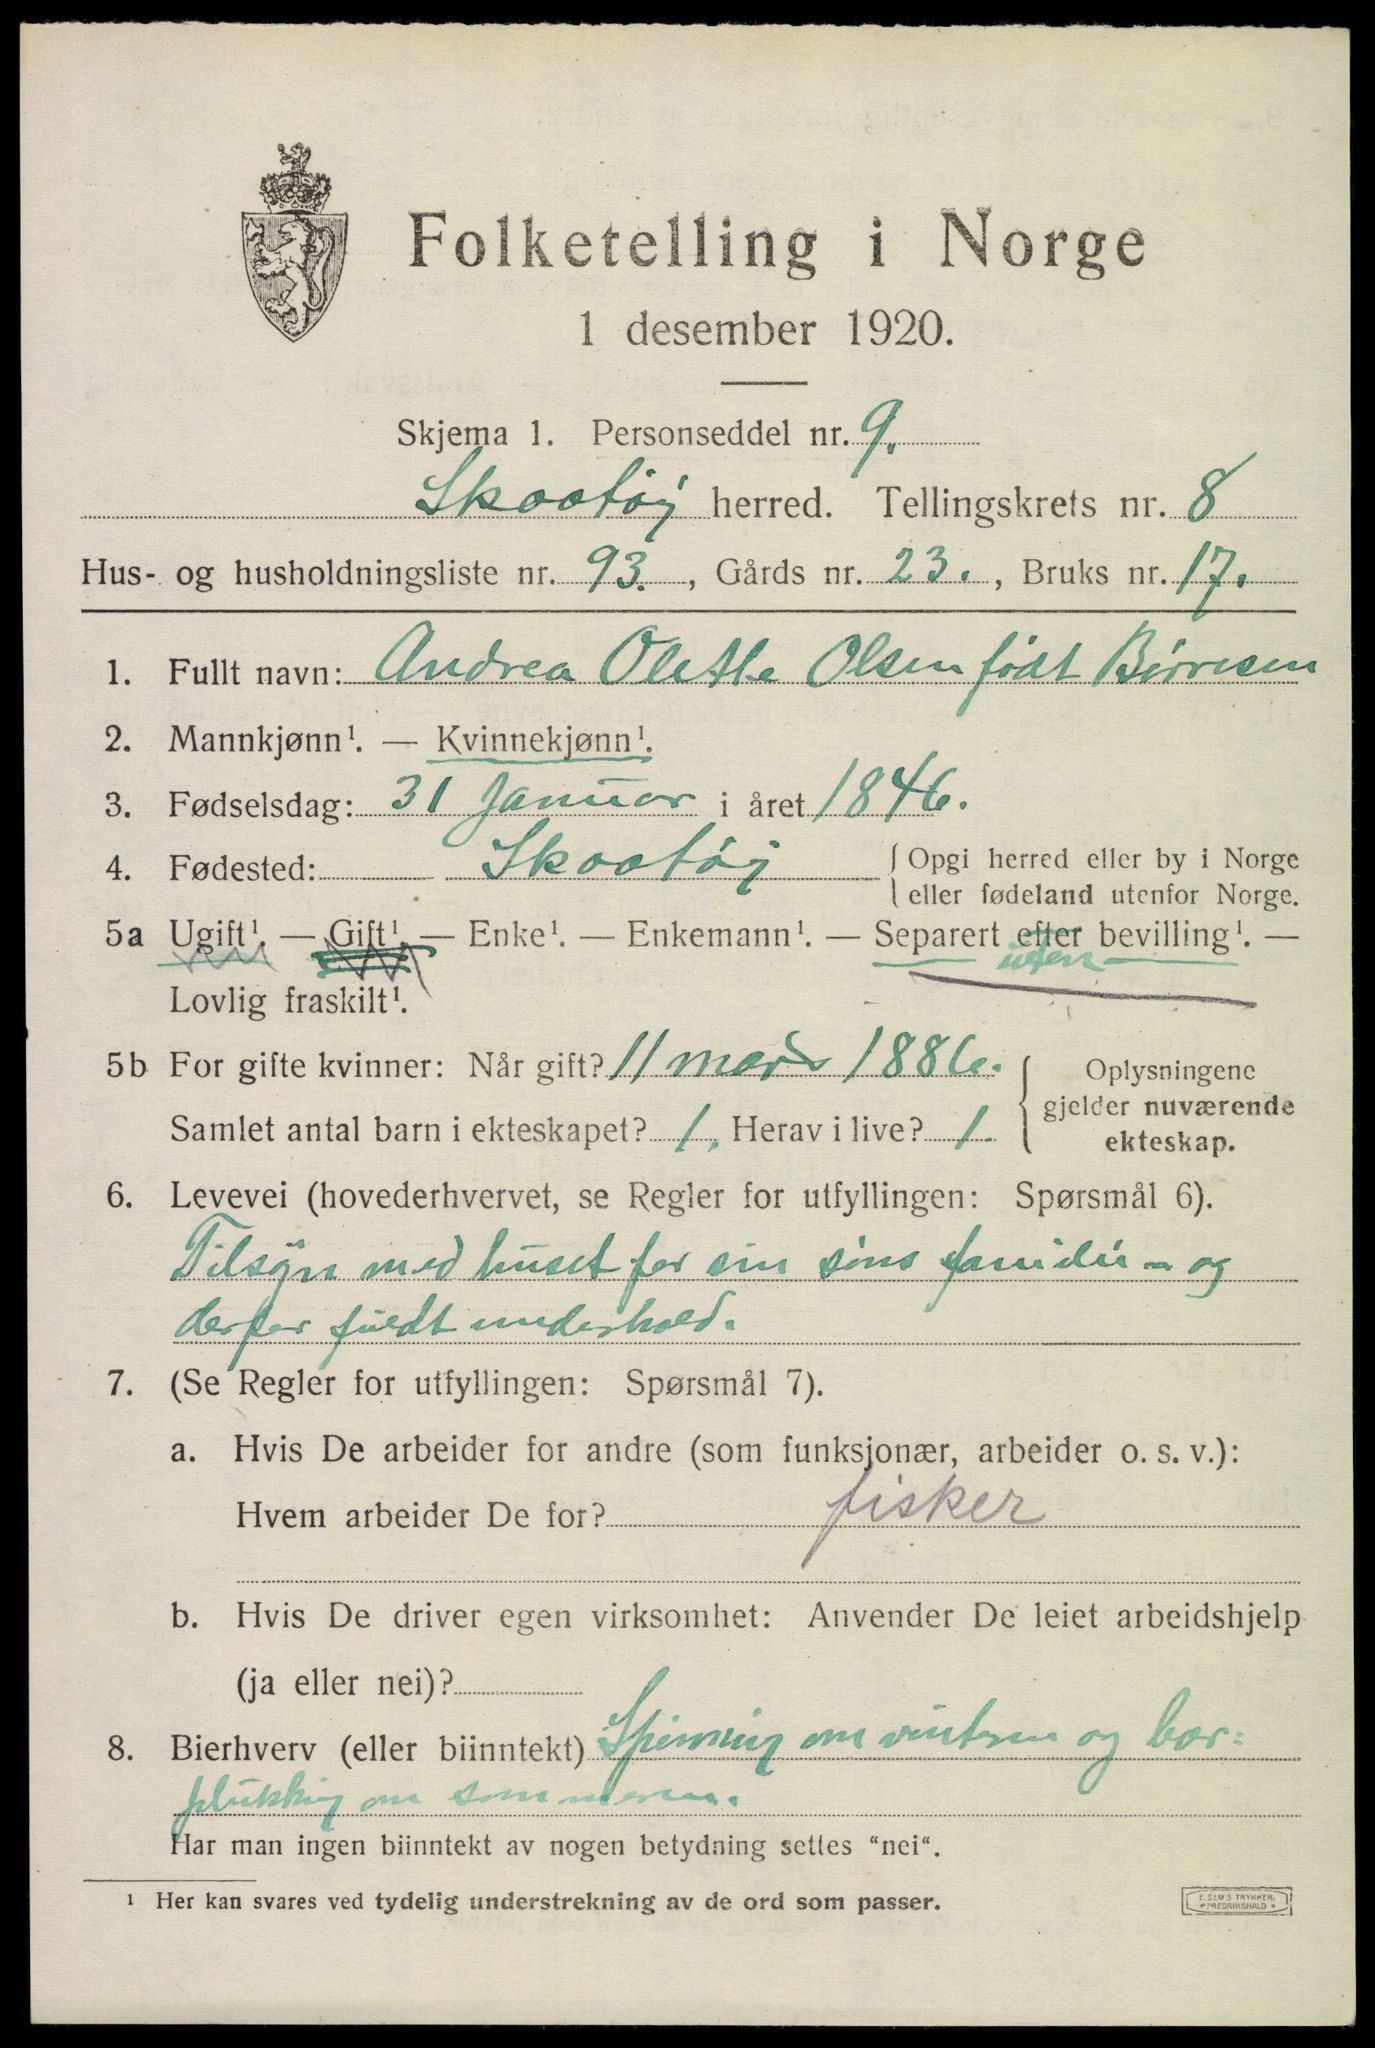 Folketelling i Norge
1 desember 1920.
Skjema 1. Personseddel nr. 9.
Skaatøy herred. Tellingskrets nr. 8
Hus- og husholdningsliste nr. 93., Gårds nr. 23., Bruks nr. 17.
1. Fullt navn: Andrea Olette Olsen født Børresen
2. Mannkjønn¹. — Kvinnekjønn¹.
3. Fødselsdag: 31 Januar i året 1846.
4. Fødested: Skaatøy {Opgi herred eller by i Norge
eller fødeland utenfor Norge.
5a Ugift¹. — Gift¹. — Enke¹. — Enkemann¹. — Separert efter bevilling¹. —
uten
Lovlig fraskilt¹.
5b For gifte kvinner: Når gift? 11 mars 1886. { Oplysningene
gjelder nuværende
Samlet antal barn i ekteskapet? 1. Herav i live? 1.
ekteskap.
6. Levevei (hovederhvervet, se Regler for utfyllingen: Spørsmål 6).
Tilsyn med huset for sin søns familie - og
derfor fuldt underhold.
7. (Se Regler for utfyllingen: Spørsmål 7).
a. Hvis De arbeider for andre (som funksjonær, arbeider o. s. v.):
Hvem arbeider De for? fisker
b. Hvis De driver egen virksomhet: Anvender De leiet arbeidshjelp
(ja eller nei)?
8. Bierhverv (eller biinntekt) Spinning om vintren og bær=
plukking om sommeren.
Har man ingen biinntekt av nogen betydning settes “nei“.
¹ Her kan svares ved tydelig understrekning av de ord som passer.
E. SEM'S TRYKKERI
FREDRIKSHALD